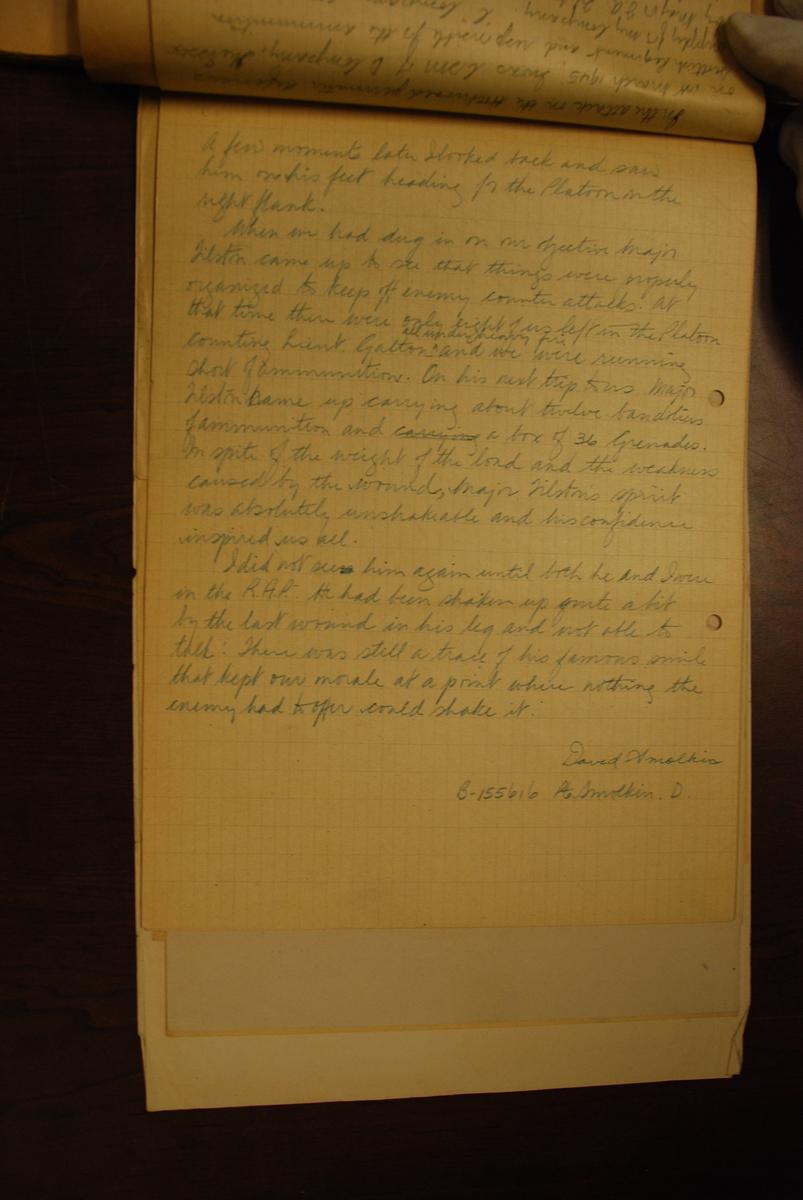 In the attack on the
on 1st March 1945, I was        of D Company, Essex
Scottish Regiment and responsible for the ammunition
supply for my company.
by Major F.A.
A few moments later I looked back and saw
him on his feet heading for the Platoon on the
right flank.
When we had dug in on our objective Major
Tilston came up to see that things were properly
organized to keep off enemy counter attacks. At
that time there were only eight of us left in the Platoon
all under heavy fire
counting Lieut. Galton and we were running
short of ammunition. On his next trip to us Major
Tilston came up carrying about twelve bandoliers
of ammunition and carrying a box of 36 Grenades.
In spite of the weight of the load and the weakness
caused by the wound, Major Tilston's spirit
was absolutely unshakeable and his confidence
inspired us all.
I did not see him again until both he and I were
in the R.A.P. He had been shaken up quite a bit
by the last wound in his leg and not able to
talk. There was still a trace of his famous smile
that kept our morale at a point where nothing the
enemy had to offer could shake it.
David Smolkin
B-155616 Pte Smolkin. D.